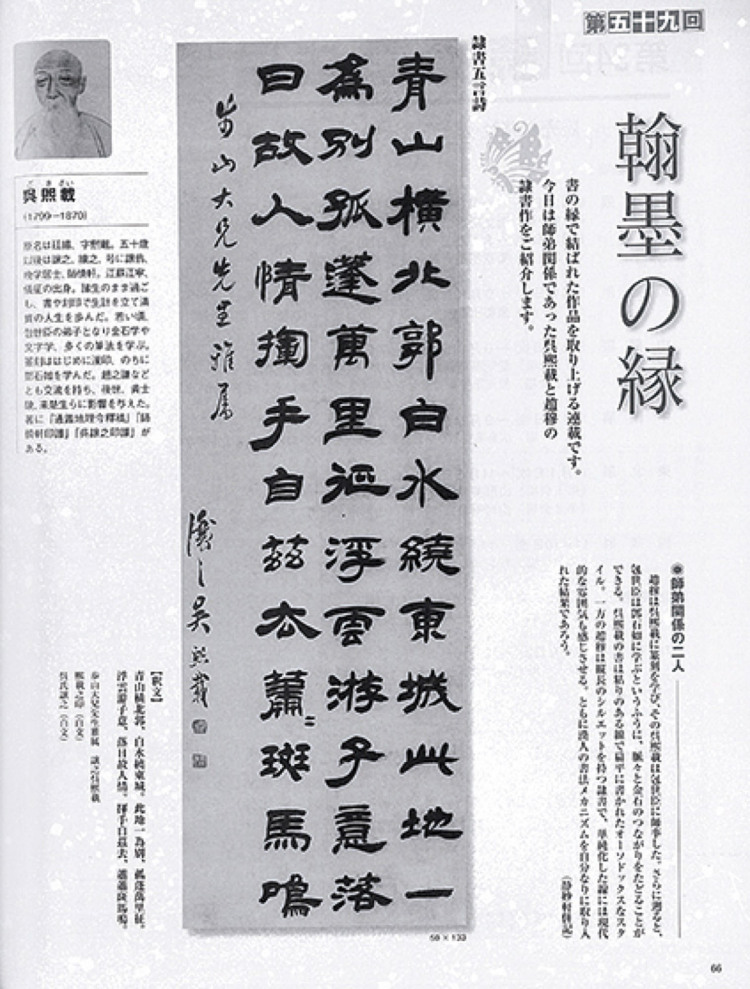 第五十九回
翰墨の縁
書の縁で結ばれた作品を取り上げる連載です。
今日は師弟関係であった呉熙載と趙穆の
隷書作をご紹介します。
師弟関係の二人
趙穆は呉熙載に篆刻を学び、その呉熙載は包世臣に師事した。さらに遡ると、
包世臣は鄧石如に学ぶというふうに、脈々と金石のつながりをたどることが
できる。呉熙載の書は粘りのある線で扁平に書かれたオーソドックスなスタ
イル。一方の趙穆は縦長のシルエットを持つ隷書で、単純化した線には現代
的な雰囲気も感じさせる。ともに漢人の書法メカニズムを自分なりに取り入
れた結果であろう。
隷書五言詩
青山橫北郭白水繞東城此地一
為別孤蓬萬里征浮雲游子意落
日故人情揮手自茲去蕭〻斑馬鳴
大兄先生雅属
讓之吳熙載
58×133
呉熙載
(1799—1870)
原名は廷颺、字熙載。五十歳
し、書や刻印で生計を立て清
貧の人生を歩んだ。若い頃、
包世臣の弟子となり金石学や
文字学、多くの筆法を学ぶ。
篆刻ははじめに漢印、のちに
鄧石如を学んだ。趙之謙など
とも交流を持ち、後世、黄士
陵、来楚生らに影響を与えた。
著に『通鑑地理今釋稿』『師
慎軒印譜』『呉譲之印譜』が
ある。
【釈文】
青山横北郭、白水繞東城。此地一為別、孤蓬萬里征。
浮雲游子意、落日故人情。揮手自茲去、蕭蕭斑馬鳴。
熙載之印(白文)
呉氏譲之(白文)
66